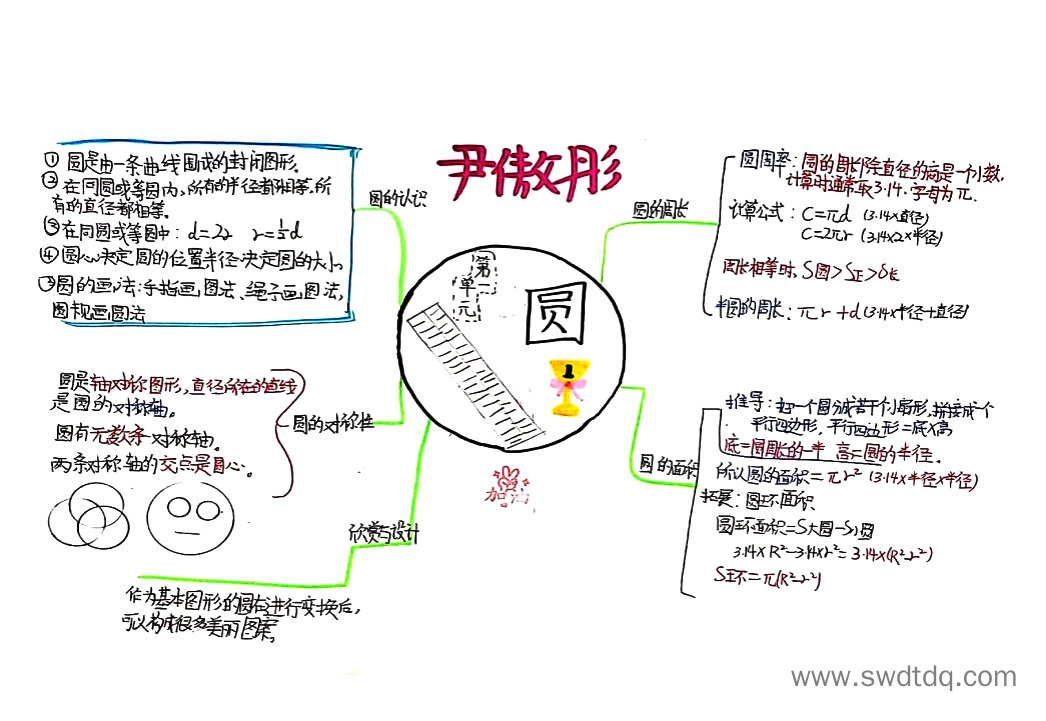 尹傲彤
第一
单元
圆
加油
圆的认识
①圆是由一条曲线围成的封闭图形。
②在同圆或等圆内,所有的半径都相等,所
有的直径都相等。
③在同圆或等圆中:d=2r r=½d
④圆心决定圆的位置半径决定圆的大小。
⑤圆的画法:手指画圆法、绳子画圆法,
圆规画圆法
圆的对称性
圆是轴对称图形,直径所在的直线
是圆的对称轴。
圆有无数条对称轴。
两条对称轴的交点是圆心。
欣赏与设计
作为基本图形的圆在进行变换后,
可以构成很多美丽图案。
圆的周长
圆周率:圆的周长除直径的商是一个数,
计算时通常取3.14.字母为π.
计算公式:C=πd (3.14×直径)
C=2πr (3.14×2×半径)
周长相等时,S圆>S正>S长
半圆的周长:πr+d(3.14×半径+直径)
圆的面积
推导:把一个圆分成若干个小扇形,拼接成个
平行四边形,平行四边形=底×高
底=圆周长的一半 高=圆的半径。
所以圆的面积=πr² (3.14×半径×半径)
拓展:圆环面积
圆环面积=S大圆-S小圆
3.14×R²-3.14×r²=3.14×(R²-r²)
S环=π(R²-r²)
www.swdtdq.com